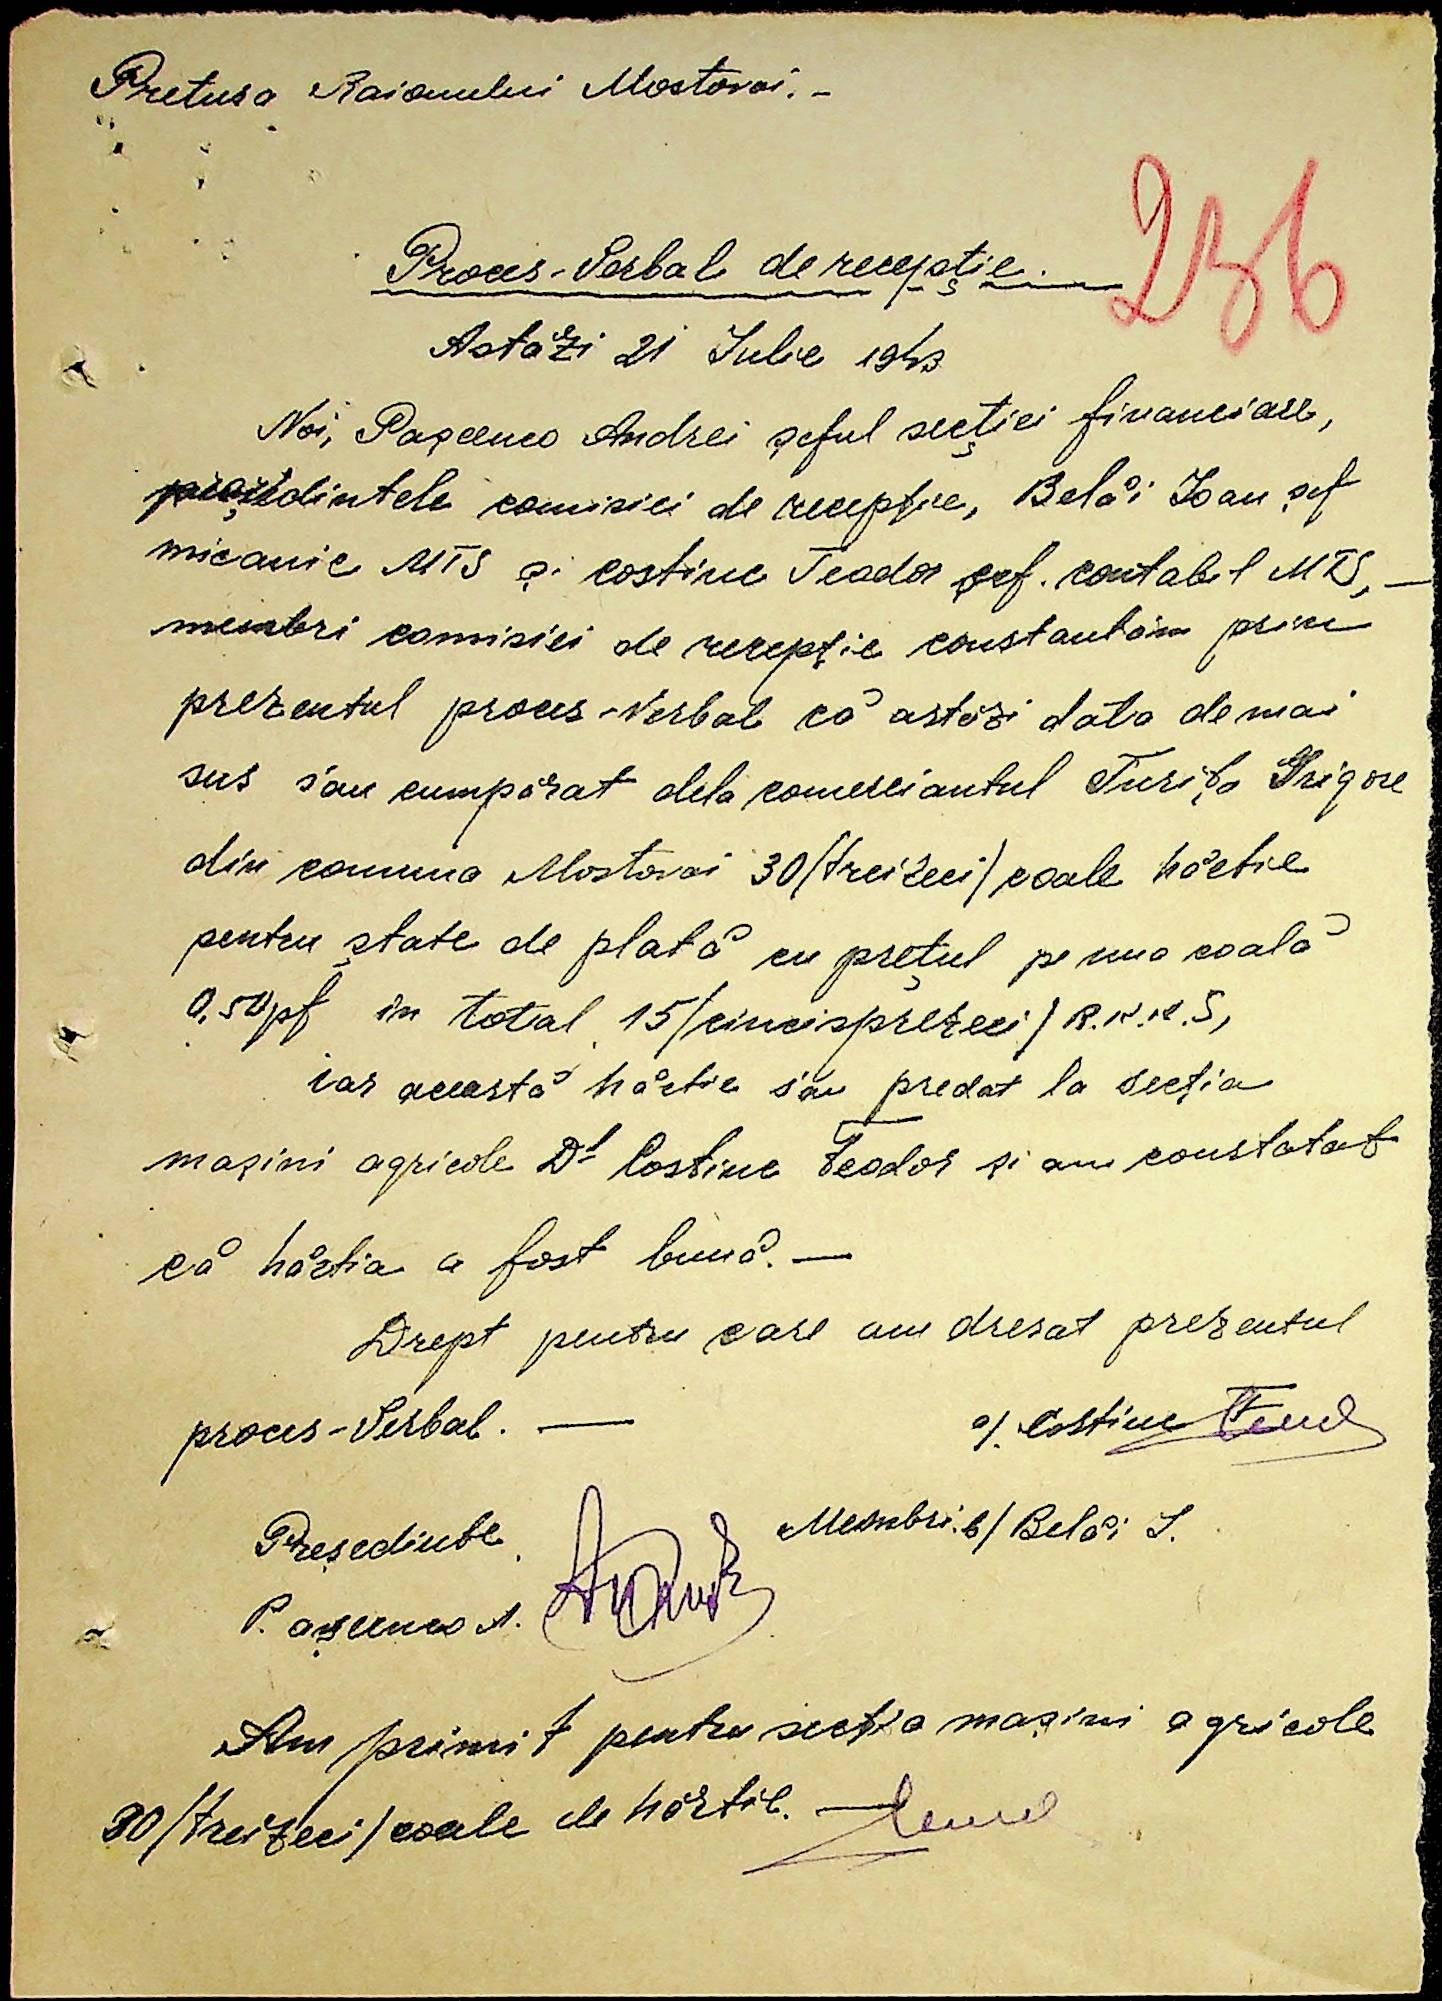 Pretura Raionului Mostovoi. -
236
Proces-Verbal de recepție.
Astăzi 21 Iulie 1943
Noi, Pașcenco Andrei șeful secției financiare,
președintele comisiei de recepție, Belăi Ioan șef
micanic MTS și Costinc Teodor șef. contabil MTS, —
membri comisiei de recepție constantăm prin
prezentul proces-Verbal că astăzi data de mai
sus s'au cumpărat dela comerciantul Turița Grigore
din comuna Mostovoi 30/treizeci/ coale hărtie
pentru ștate de plată cu prețul pe una coală
0,50 pf în total 15/cincisprezeci/ R.K.K.S,
iar aceastá hărtie s'au predat la secția
mașini agricole Dl Costinc Teodor și am constatat
că hărtia a fost bună. —
Drept pentru care am dresat prezentul
proces-Verbal. —
a/. Costinc
Președinte Membri: b/ Belăi I.
P. așcenco A.
Am primit pentru secția mașini agricole
30/treizeci/ coale de hărtie. —